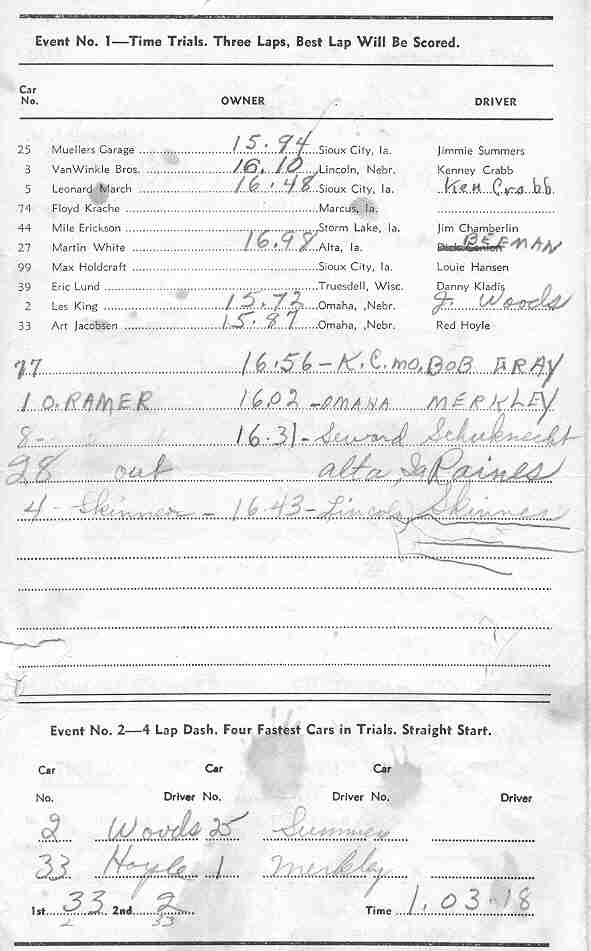 Event No. 1—Time Trials. Three Laps, Best Lap Will Be Scored.
Car No. OWNER DRIVER
25 Muellers Garage 15.94 Sioux City, Ia. Jimmie Summers
3 VanWinkle Bros. 16.10 Lincoln, Nebr. Kenney Crabb
5 Leonard March 16.48 Sioux City, Ia. Ken Crabb
74 Floyd Krache Marcus, Ia.
44 Mile Erickson Storm Lake, Ia. Jim Chamberlin
27 Martin White 16.98 Alta, Ia. BEEMAN
99 Max Holdcraft Sioux City, Ia. Louie Hansen
39 Eric Lund Truesdell, Wisc. Danny Kladis
2 Les King 15.72 Omaha, ,Nebr. J. Woods
33 Art Jacobsen 15.87 Omaha, ,Nebr. Red Hoyle
77 16.56 - K.C.MO. BOB GRAY
1 O. RAMER 16.02 - OMAHA MERKLEY
8- 16.31 - Seward Schuknecht
28 out alta, Ia Raines
4 - Skinner - 16.43 - Lincoln Skinner
Event No. 2—4 Lap Dash. Four Fastest Cars in Trials. Straight Start.
Car Car Car
No. Driver No. Driver No. Driver
2 Woods 25 Summer
33 Hoyle 1 Merkley
1st 33 2nd 2 Time 1.03.18
2 33